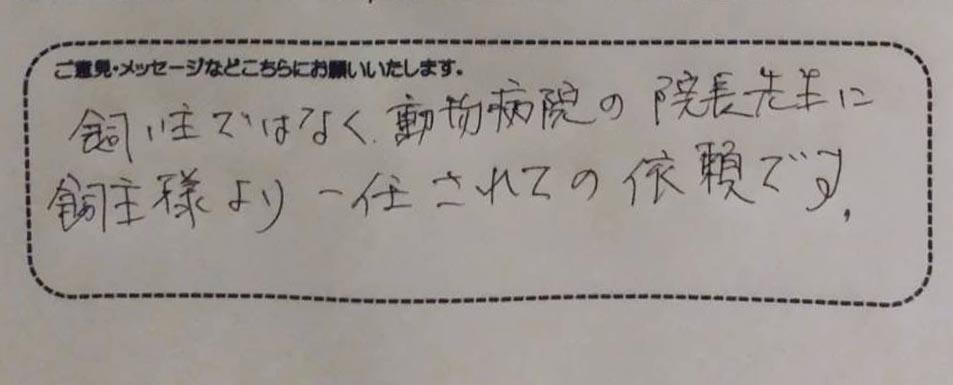 ご意見・メッセージなどこちらにお願いいたします。
飼い主ではなく、動物病院の院長先生に
飼主様より一任されての依頼です。